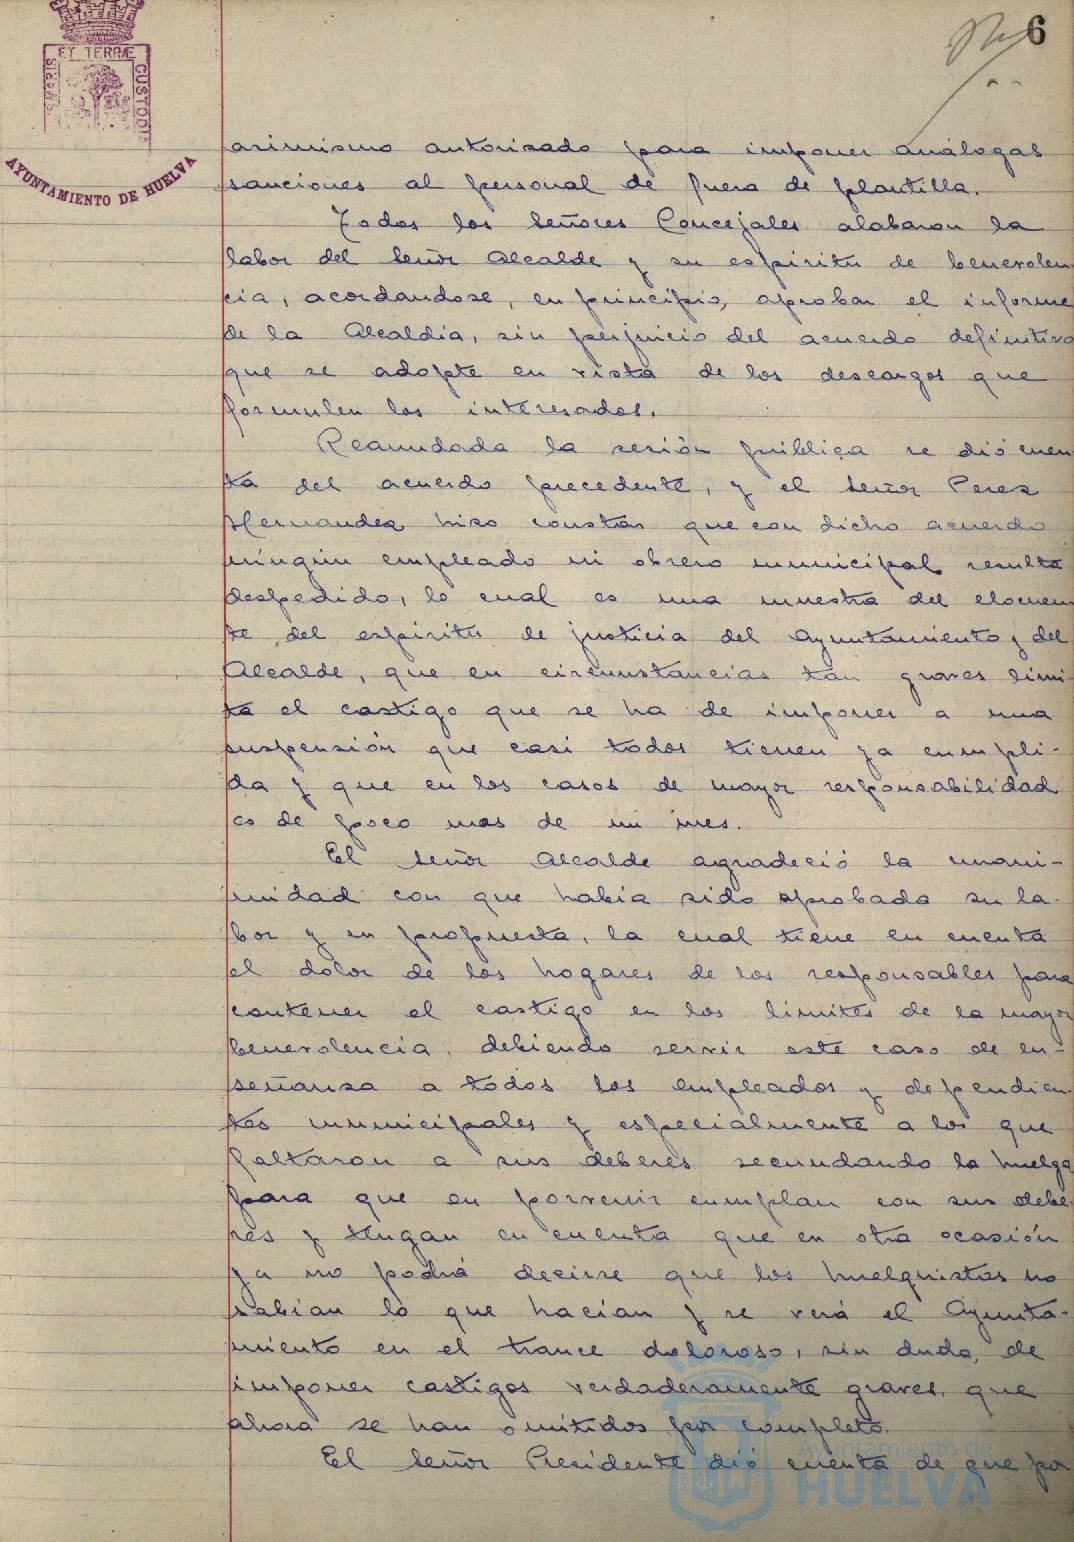 6
ET TERRÆ
MARIS
CUSTODI
AYUNTAMIENTO DE HUELVA
asimismo autorisado para imponer análogas
sanciones al personal de fuera de plantilla.
Todos los Señores Concejales alabaron la
labor del Señor Alcalde y su espíritu de benevolen
cia, acordandose, en principio, aprobar el informe
de la Alcaldía, sin perjuicio del acuerdo definitivo
que se adopte en vista de los descargos que
formulen los interesados.
Reanudada la sesión pública se dió cuen
ta del acuerdo precedente, y el Señor Perez
Hernandez hizo constar que con dicho acuerdo
ningún empleado ni obrero municipal resulta
despedido, lo cual es una muestra del elocuen
te del espíritu de justicia del Ayuntamiento y del
Alcalde, que en circunstancias tan graves limi
ta el castigo que se ha de imponer a una
suspensión que casi todos tienen ya cumpli-
da y que en los casos de mayor responsabilidad
es de poco mas de un mes.
El Señor Alcalde agradeció la unani-
midad con que había sido aprobada su la-
bor y su propuesta, la cual tiene en cuenta
el dolor de los hogares de los responsables para
contener el castigo en los límites de la mayor
benevolencia, debiendo servir este caso de en-
señansa a todos los empleados y dependien-
tes municipales y especialmente a los que
faltaron a sus deberes secundando la huelga
para que en porvenir cumplan con sus debe-
res y tengan en cuenta que en otra ocasión
ya no podrá decirse que los huelguistas no
sabían lo que hacían y se verá el Ayunta-
miento en el trance doloroso, sin duda, de
imponer castigos verdaderamente graves, que
ahora se han omitidos por completo.
El Señor Presidente dió cuenta de que por
Ayuntamiento de
HUELVA